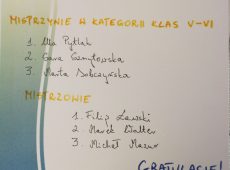 MISTRZYNIE W KATEGORII KLAS V-VI
1. Ala Pytlak
2. Sara
3. Marta Sobczyńska
MISTRZOWIE
1. Filip Zawski
2. Marek Walter
3. Michał Mazur
GRATULACJE!